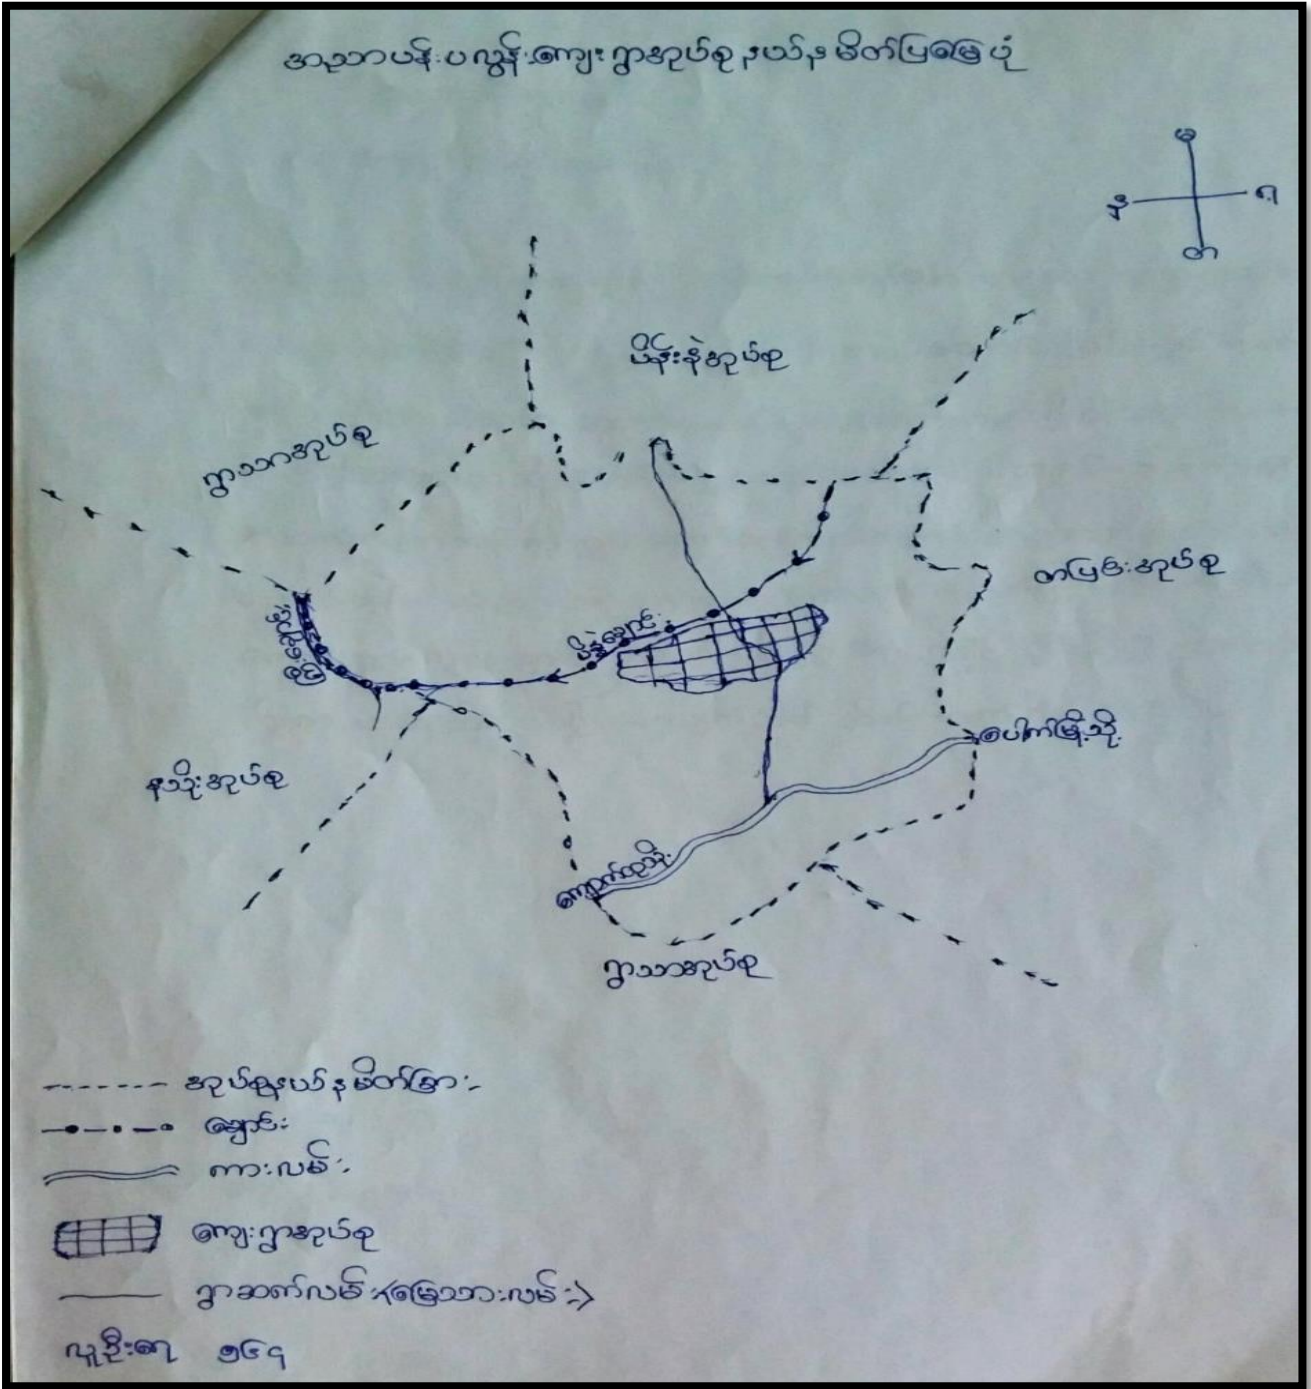 အညာပန်းပလွန်းကျေးရွာအုပ်စု နယ်နမိတ်ပြမြေပုံ
မ
နံ
ရှ
တ
ပိန်းနဲအုပ်စု
ရွာသာအုပ်စု
တပြင်းအုပ်စု
ပိန်းနဲချောင်း
နသိုးအုပ်စု
ပေါက်မြို့သို့
ကျောက်ထုသို့
ရွာသာအုပ်စု
အုပ်စုနယ်နမိတ်ခြား
ချောင်း
ကားလမ်း
ကျေးရွာအုပ်စု
ရွာဆက်လမ်း(မြေသားလမ်း)
လူဦးရေ ၅၆၄